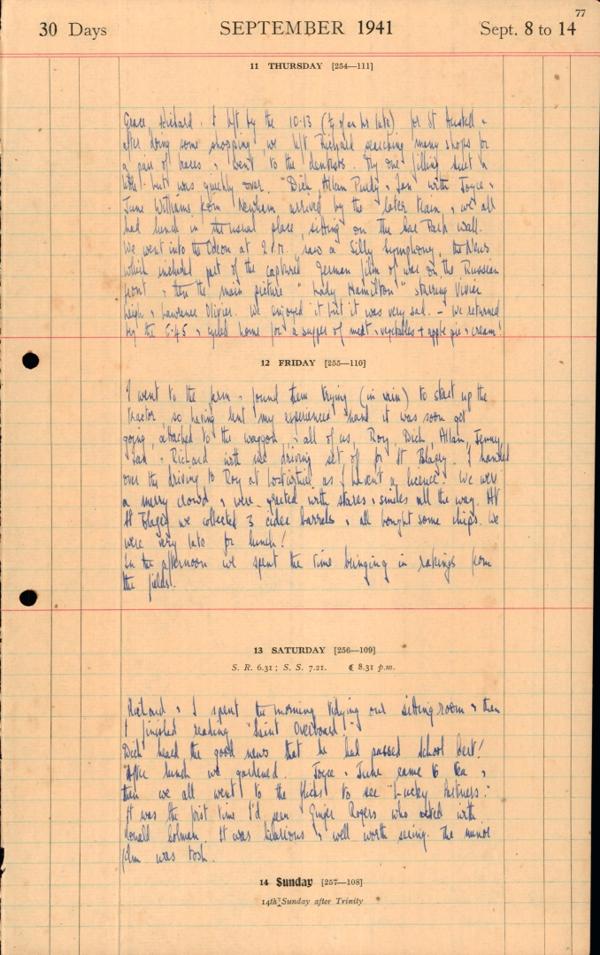 77
30 Days SEPTEMBER 1941 Sept. 8 to 14
11 THURSDAY [254—111]
Grace, Richard & I left by the 10.13 (¼ of an hr late) for St Austell &
after doing some shopping we left Richard searching many shops for
a pair of braces & went to the dentists. My one filling hurt a
little but was quickly over. Dick, Allan Purdy & Jan with Joyce &
June Withams, from Newham arrived by the later train & we all
had lunch in the usual place, sitting on the Car Park wall.
We went into the Odeon at 2 & saw a Silly Symphony, the News
which included part of the captured German film of war on the Russian
front & then the main picture "Lady Hamilton" starring Vivien
Leigh & Lawrence Olivier. We enjoyed it but it was very sad. — We returned
by the 5.45 & cycled home for a supper of meat & vegetables + apple pie & cream!
12 FRIDAY [255—110]
I went to the farm & found them trying (in rain) to start up the
tractor so having lent my experienced hand it was soon got
going, attached to the waggon & all of us, Rory, Dick, Allan, Jenny,
Jan & Richard with me driving set off for St Blazey. I handed
over the driving to Roy at as I haven't a licence! We were
a merry crowd & were greeted with stares & smiles all the way. At
St Blazey we collected 3 cider barrels & all bought some chips. We
were very late for lunch!
In the afternoon we spent the time bringing in rakings from
the fields.
13 SATURDAY [256—109]
S. R. 6.31; S. S. 7.21. ☾ 8.31 p.m.
Richard & I spent the morning tidying our sitting room & then
I finished reading "Saint Overboard".
Dick heard the good news that he had passed School Cert!
After lunch we gardened. Joyce & June came to tea &
then we all went to the flicks to see "Lucky Partners."
It was the first time I'd seen Ginger Rogers who acted with
Ronald Colman. It was hilarious & well worth seeing. The minor
film was tosh.
14 Sunday [257—108]
14th Sunday after Trinity